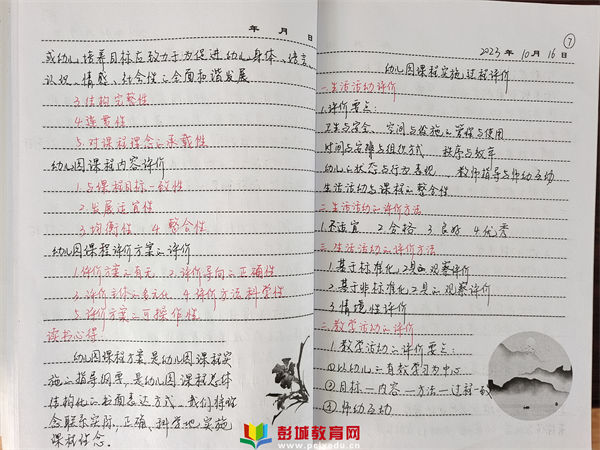 年 月 日
或幼儿培养目标应致力于为促进幼儿身体、语言
认知、情感、社会性的全面和谐发展
3.结构完整性
4.连贯性
5.对课程理念的承载性
幼儿园课程内容评价
1.与课程目标一致性
2.发展适宜性
3.均衡性 4.整合性
幼儿园课程评价方案的评价
1.评价方案的有无 2.评价导向的正确性
3.评价主体的多元化 4.评价方法科学性
5.评价方案的可操作性
读书心得
幼儿园课程方案是幼儿园课程实
施的指导纲要,是幼儿园课程总体
结构化的书面表达方式。我们将理
念联系实际,正确、科学地实施
课程信念。
⑦
2023 年 10 月 16 日
幼儿园课程实施过程评价
一.生活活动评价
1.评价要点:
卫生与安全、空间与设施的安排与使用
时间与安排与组织方式 秩序与效率
幼儿的状态与行为表现、教师指导与师幼互动
生活活动与课程的整合性
二.生活活动的评价方法
1.不适宜 2.合格 3.良好 4.优秀
三.生活活动的评价方法
1.基于标准化工具的观察评价
2.基于非标准化工具的观察评价
3.情境性评价
二.教学活动的评价
1.教学活动的评价要点:
①以幼儿的有效学习为中心
②目标—内容—方法—过程一致
④师幼互动
彭城教育网
www.pcjxedu.com